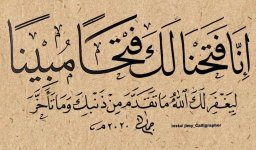 إِنَّا فَتَحْنَا لَكَ فَتْحًا مُبِينًا
لِيَغْفِرَ لَكَ اللَّهُ مَا تَقَدَّمَ مِنْ ذَنْبِكَ وَمَا تَأَخَّرَ
٢٠٢٠م